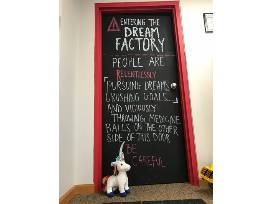 ENTERING THE
DREAM
FACTORY
PEOPLE ARE
RELENTLESSLY
PURSUING DREAMS,
CRUSHING GOALS...
AND VICIOUSLY
THROWING MEDICINE
BALLS ON THE OTHER
SIDE OF THIS DOOR
BE
CAREFUL